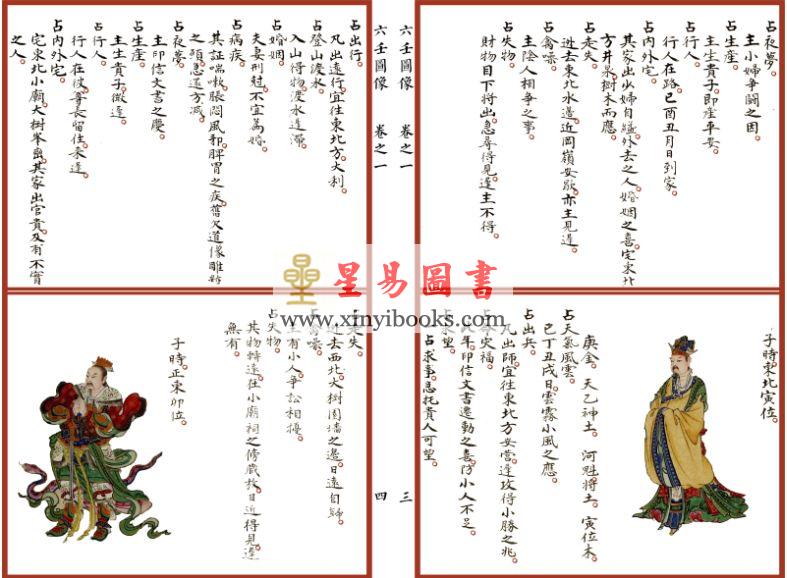 占夜夢。
主小婦爭鬪之因。
占生產。
主生貴子。即產平安。
占行人。
行人在路。己酉丑月日到家。
占內外宅。
其家出少婦自縊。外去之人婚姻之喜。宅東北
方井泉樹木而應。
占走失。
逃去東北水邊近岡嶺安歇。亦主見遲。
占禽噪。
主陰人相爭之事。
占失物。
財物目下將出。急尋得見。遲主不得。
子時東北寅位。
庚金。天乙神土。河魁將土。寅位木。
占天氣風雲。
己丁丑戌日雲霧小風之應。
占出兵。
凡出師宜往東北方安營。逢攻得小勝之兆。
災福。
年印信文書遷動之喜。防小人不足。
望。
占求事。急托貴人可望。
六壬圖像 卷之一 三
六壬圖像 卷之一 四
占出行。
凡出遠行宜往東北方大利。
占登山渡水。
入山得物。渡水遲滯。
占婚姻。
夫妻刑尅。不宜為婚。
占病疾。
其証喘嗽脹悶。風邪脾胃之疾。舊欠道像雕
之願。急還方減。
占夜夢。
主印信文書之慶。
占生產。
主生貴子微遲。
占行人。
行人在彼。尊長留住來遲。
占內外宅。
宅東北小廟。大樹峯巒。其家出官貴。及有不實
之人。
占走失。
逃去西北大樹園墻之邊。日遠自歸。
占禽噪。
主有小人爭訟相擾。
占失物。
其物轉遠。在小廟祠之傍藏放。日近得見。遲
無有。
子時正東卯位。
星易圖書
www.xinyibooks.com